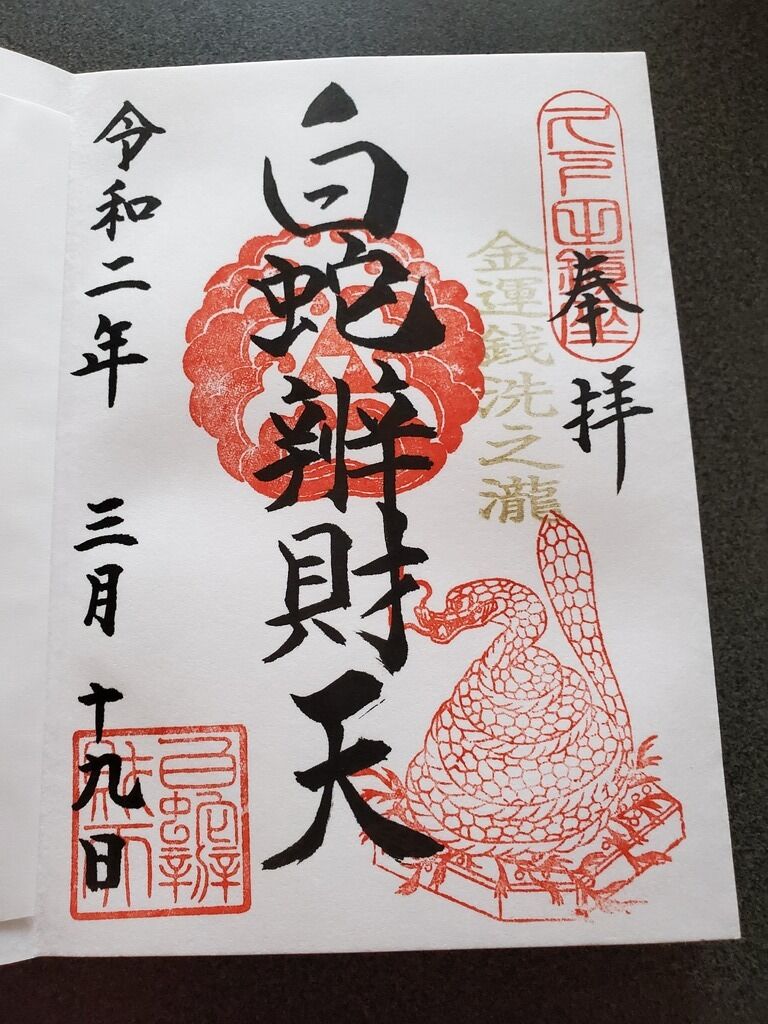 久下田鎮座
奉拝
金運銭洗之瀧
白蛇辨財天
令和二年 三月 十九日
白蛇辨
財天